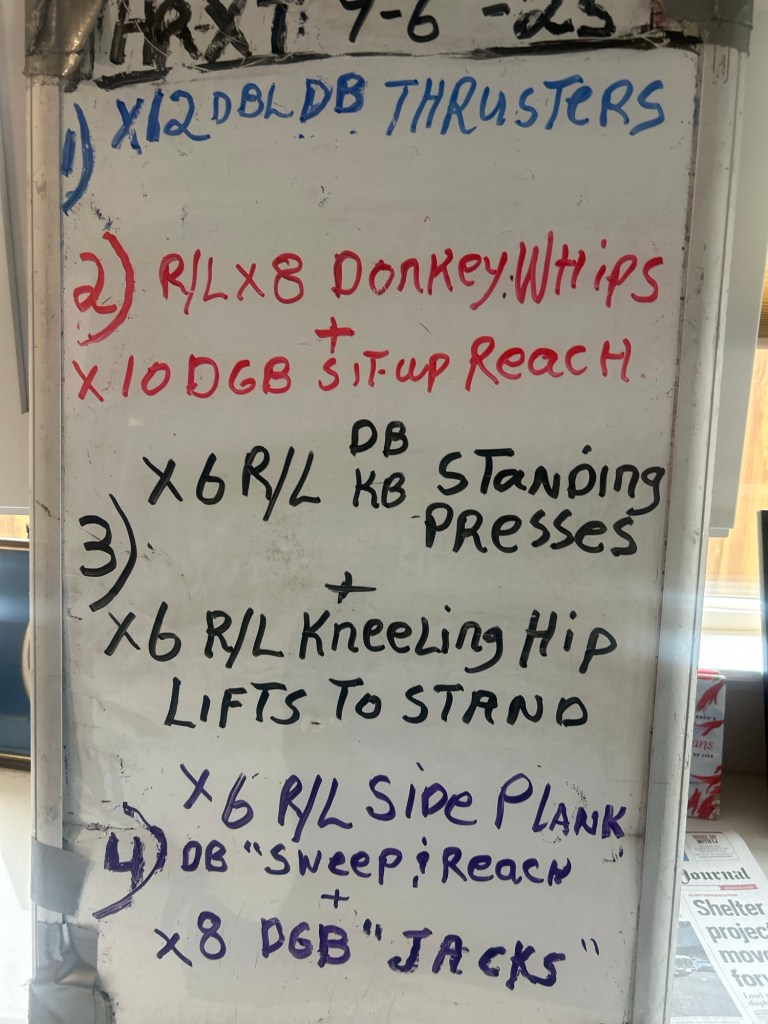 HR-XT: 9-6-25
1) X12 DBL DB THRUSTERS
2) R/L X8 DONKEY WHIPS
+
X 10 DGB SIT-UP REACH
3) X6 R/L DB KB STANDING
PRESSES
+
X6 R/L KNEELING HIP
LIFTS TO STAND
4) X6 R/L SIDE PLANK
DB "SWEEP & REACH
+
X8 DGB "JACKS"
ans
Journal
Shelter
projec
mov
for